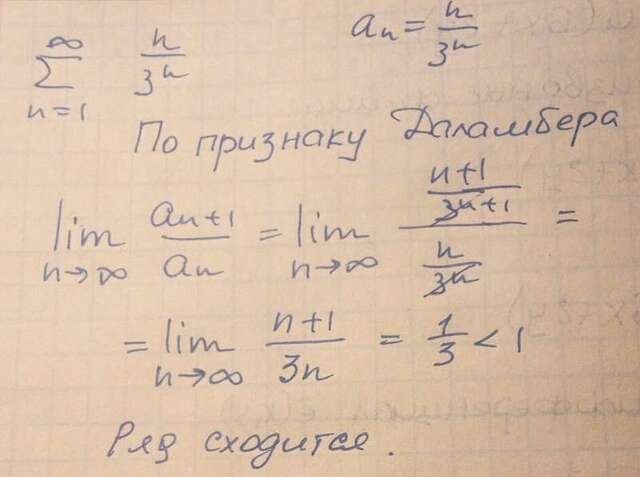 ∑_{n=1}^{∞} n/3ⁿ   aₙ = n/3ⁿ
По признаку Даламбера
lim_{n→∞} aₙ₊₁/aₙ = lim_{n→∞} ((n+1)/3ⁿ⁺¹)/(n/3ⁿ) =
= lim_{n→∞} (n+1)/3n = 1/3 < 1
Ряд сходится.